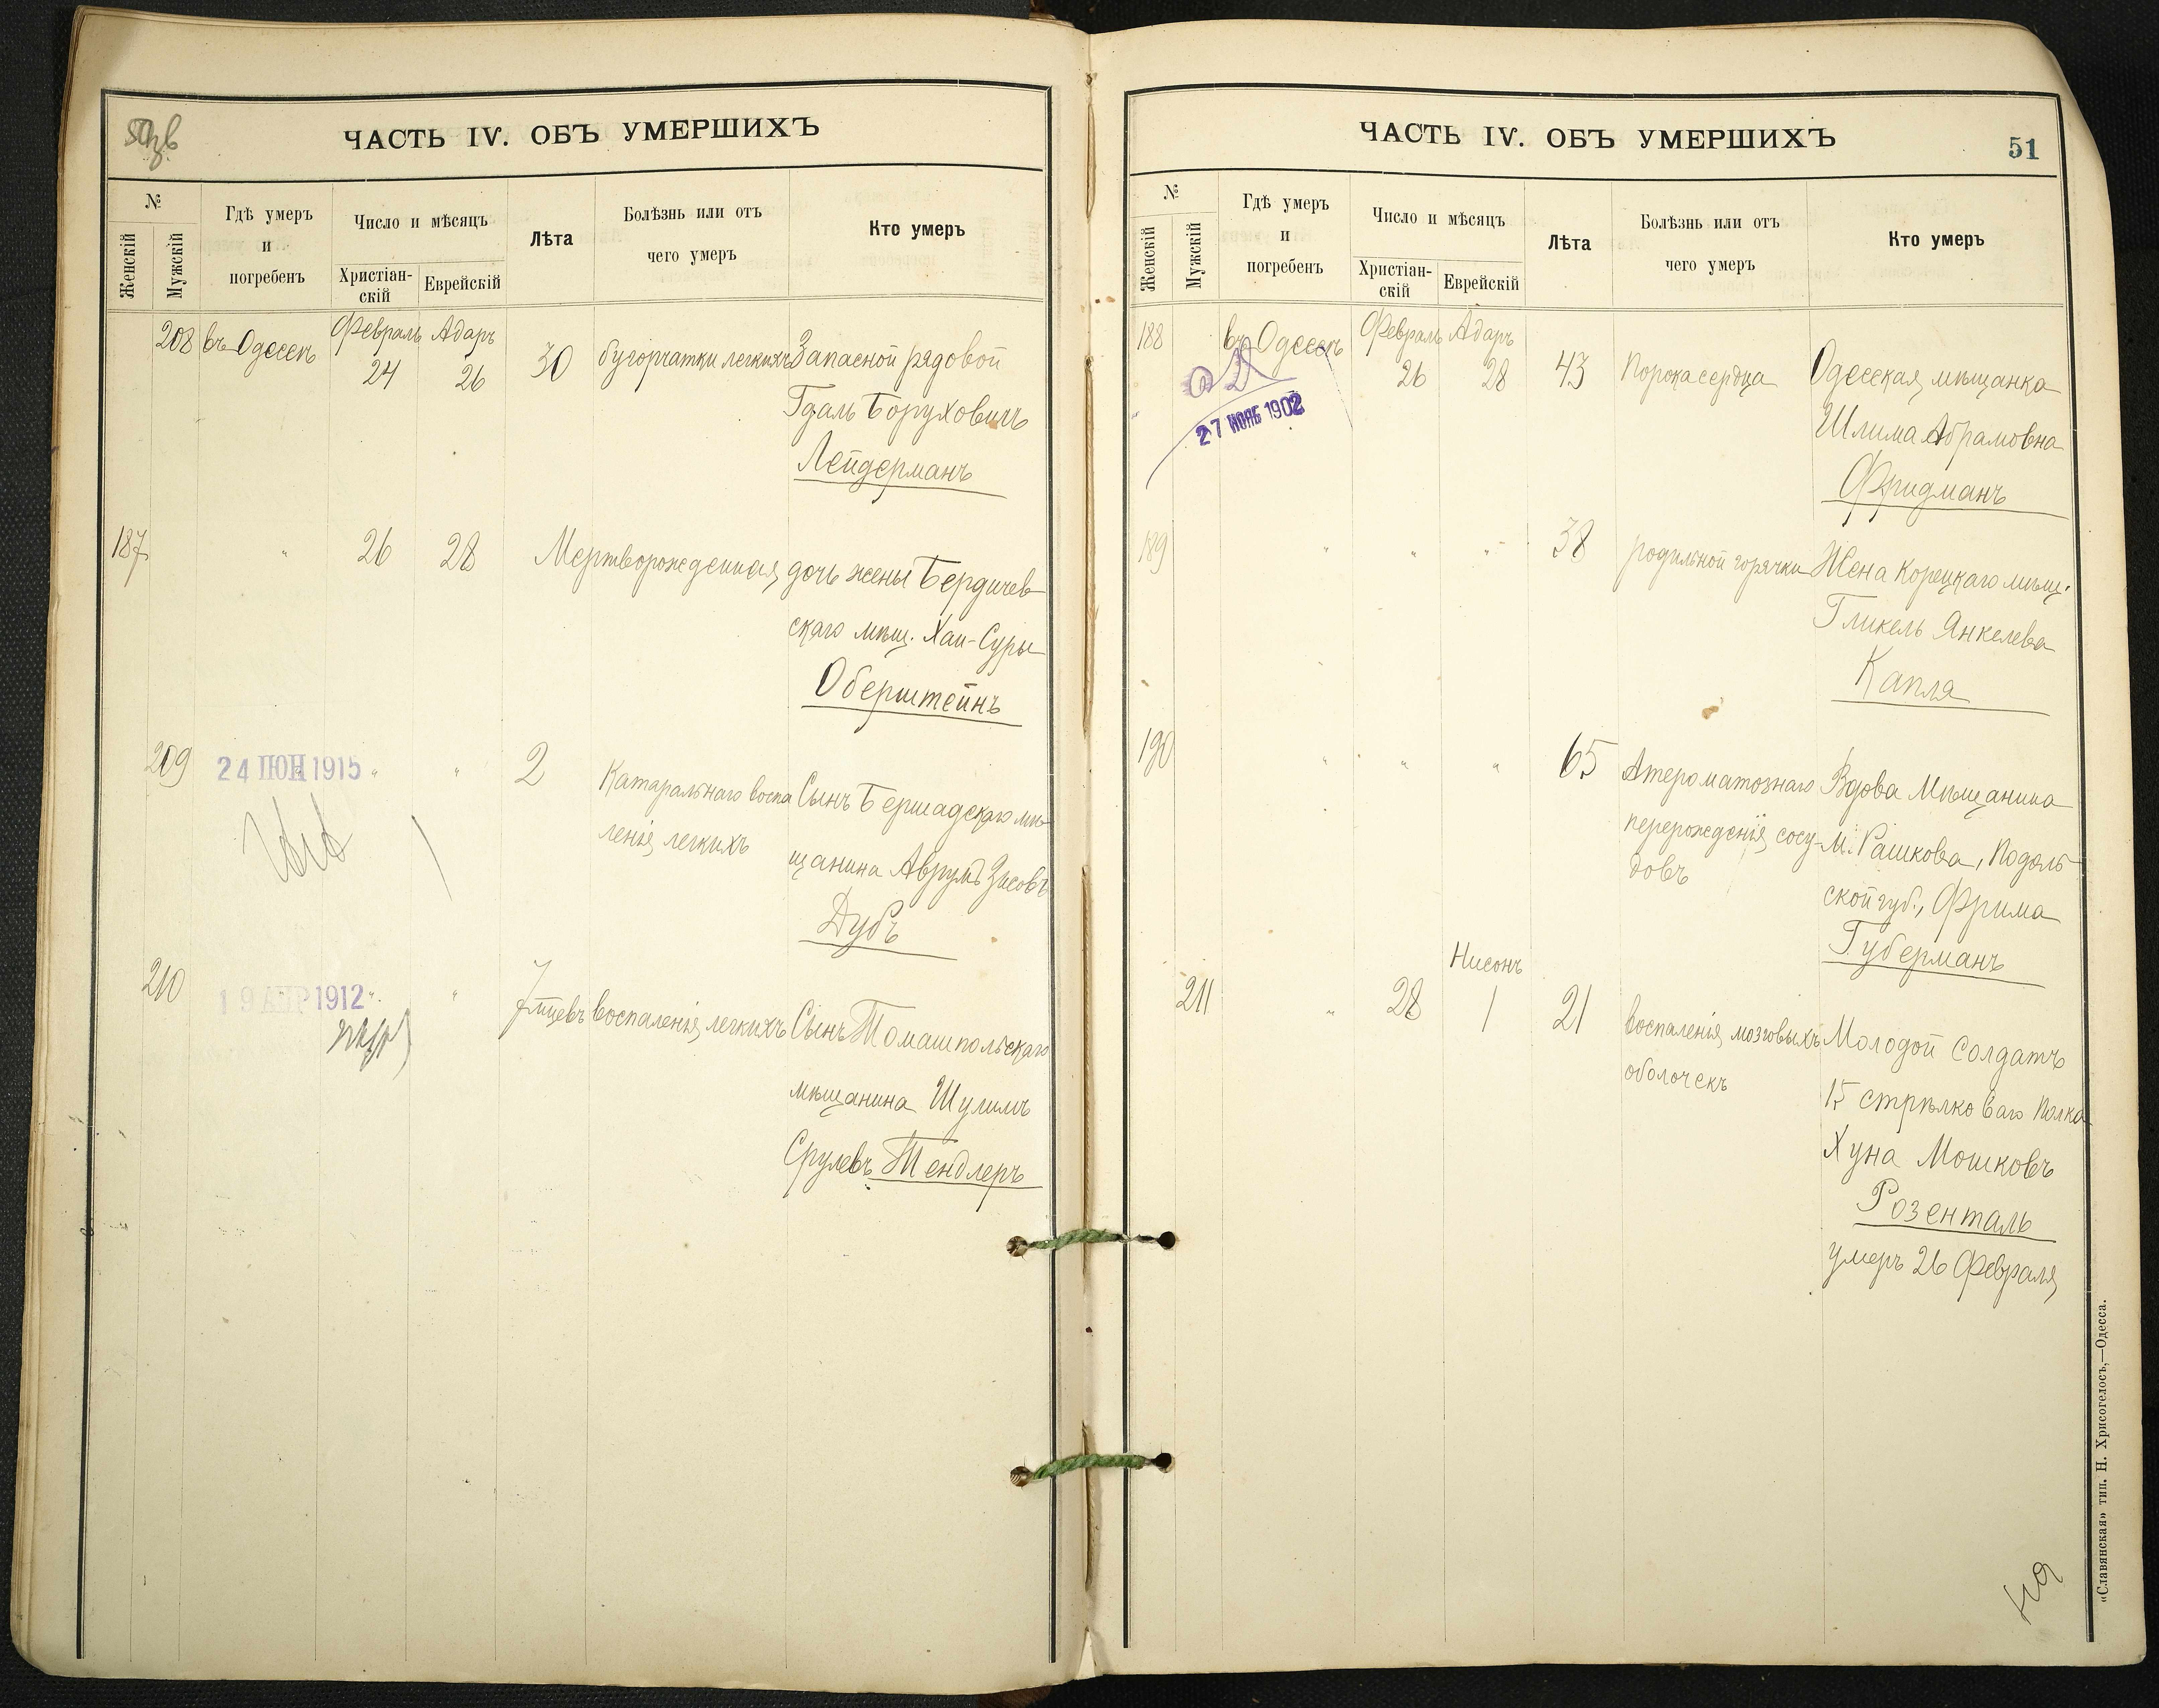 ЧАСТЬ IV. ОБЪ УМЕРШИХЪ
№
Женскій
Мужскій
Гдѣ умеръ
и
погребенъ
Число и мѣсяцъ
Христіан-
скій
Еврейскій
Лѣта
Болѣзнь или отъ
чего умеръ
Кто умеръ
208 въ Одессѣ Февраль 24 Адаръ 26 30 бугорчатки легкихъ Запасной рядовой
Гдаль Боруховичъ
Лейдерманъ
187 " 26 28 Мертворожденная дочь жены Бердичев-
скаго мѣщ. Хаи-Суры
Оберштейнъ
209 " " " 2 Катаральнаго воспа Сынъ Бершадскаго мѣ-
ленія легкихъ щанина Аврумъ Зисовъ
Дубъ
24 ІЮН 1915
210 " " 7 мцевъ воспаленія легкихъ Сынъ Томашпольскаго
мѣщанина Шулимъ
Срулевъ Тендлеръ
19 АПР 1912
ЧАСТЬ IV. ОБЪ УМЕРШИХЪ
51
№
Женскій
Мужскій
Гдѣ умеръ
и
погребенъ
Число и мѣсяцъ
Христіан-
скій
Еврейскій
Лѣта
Болѣзнь или отъ
чего умеръ
Кто умеръ
188 въ Одессѣ Февраль 26 Адаръ 28 43 Порока сердца Одесская мѣщанка
Шлима Абрамовна
Фридманъ
27 НОЯБ 1902
189 " " " 38 родильной горячки Жена Корецкаго мѣщ.
Гликель Янкелева
Капля
190 " " " 65 Атероматознаго Вдова Мѣщанина
перерожденія сосу- м. Рашкова, Подоль
довъ ской губ., Фрима
Губерманъ
Нисонъ
211 " 28 1 21 воспаленія мозговыхъ Молодой солдатъ
оболочекъ 15 стрѣлковаго полка
Хуна Мошковъ
Розенталь
умеръ 26 Февраля
«Славянская» тип. Н. Хрисогелосъ,—Одесса.